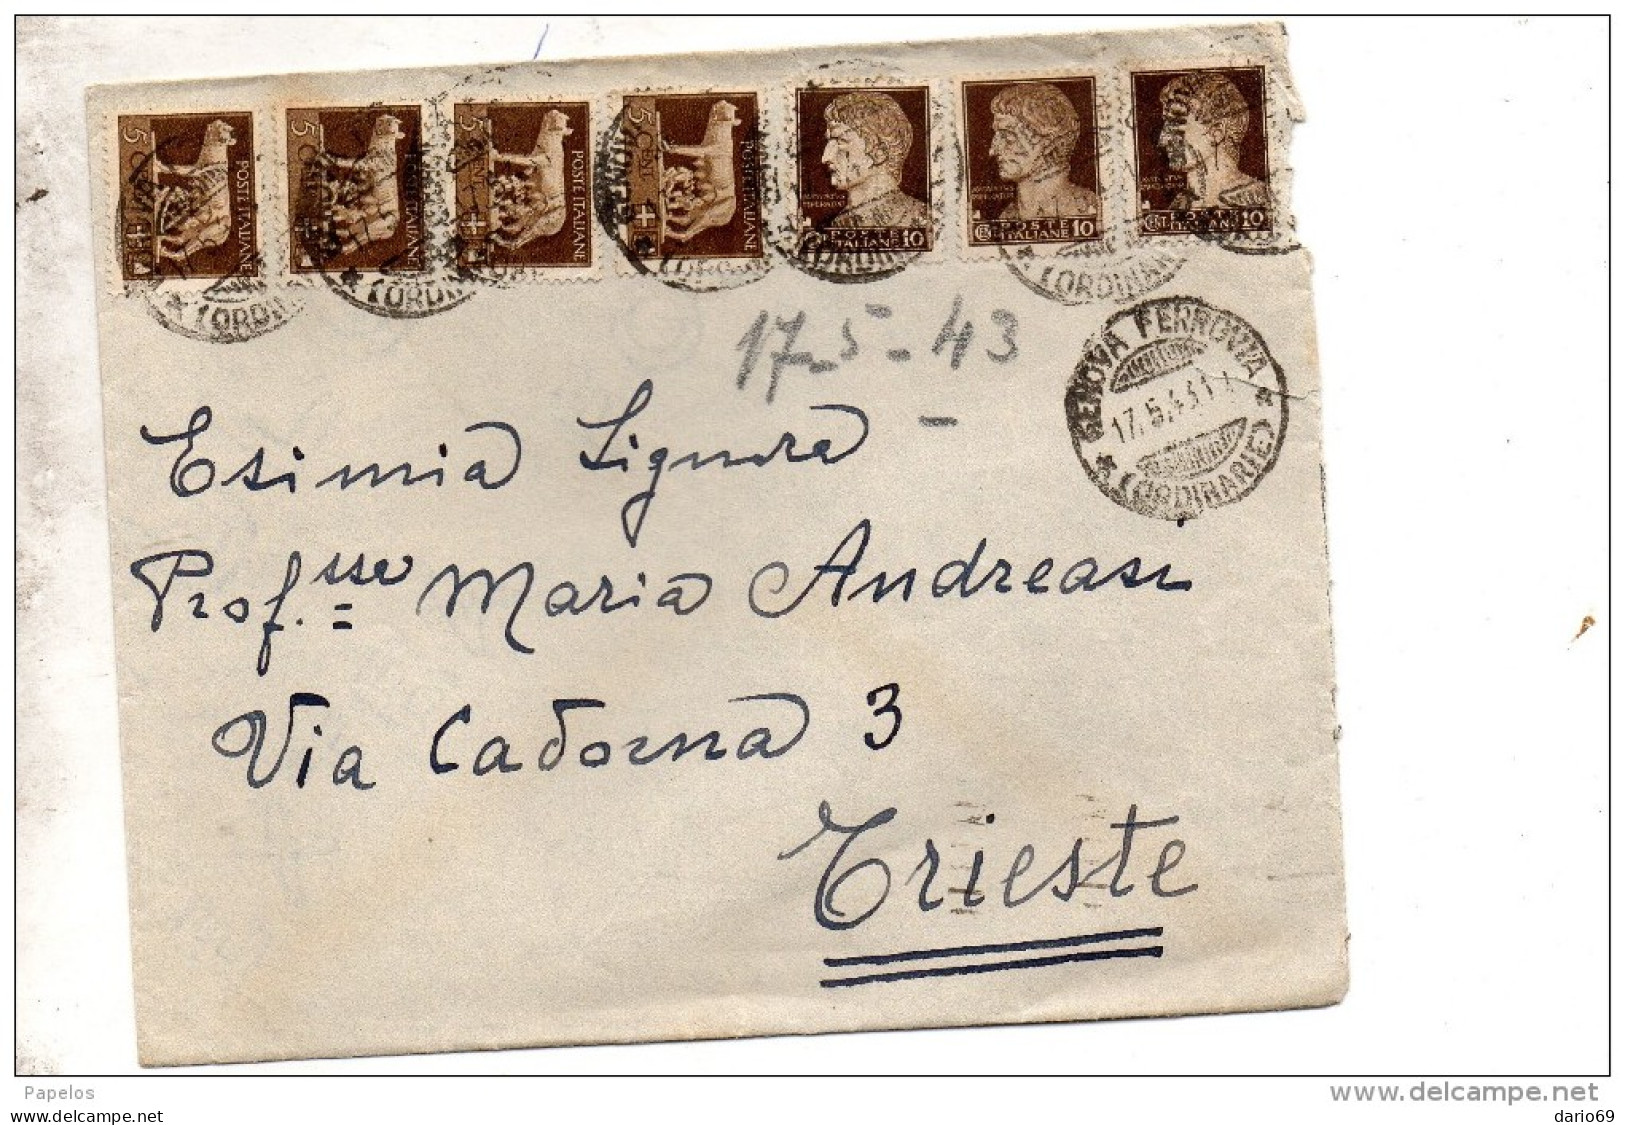 5 CENT. POSTE ITALIANE
5 CENT. POSTE ITALIANE
5 CENT. POSTE ITALIANE
5 CENT. POSTE ITALIANE
POSTE ITALIANE 10
POSTE ITALIANE 10
POSTE ITALIANE 10
17-5-43
GENOVA FERROVIA
17.5.43
(ORDINARIE)
Esimia Signora
Prof.ssa Maria Andreasi
Via Cadorna 3
Trieste
Papelos
www.delcampe.net
www.delcampe.net
dario69